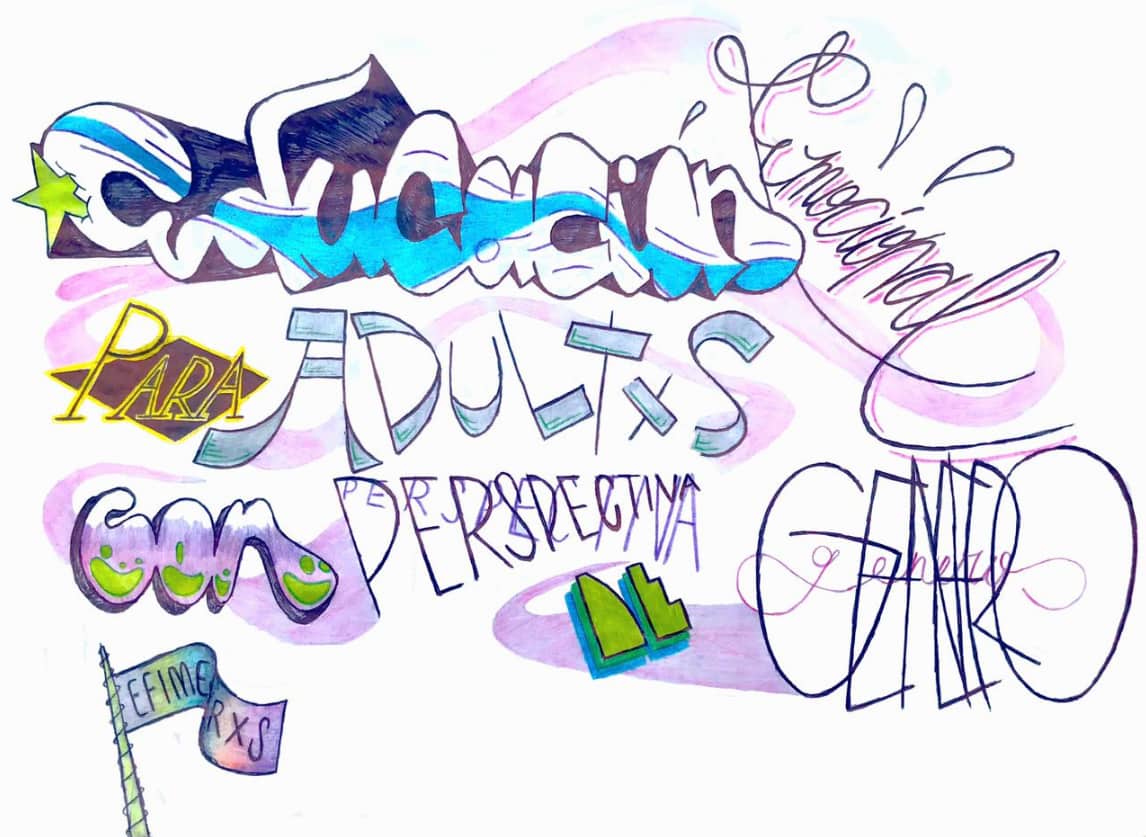 educación Emocional
PARA ADULTXS
con PERSPECTIVA PERSPECTIVA DE GENERO genero
EFIMERXS